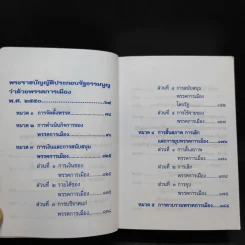 พระราชบัญญัติประกอบรัฐธรรมนูญ
ว่าด้วยพรรคการเมือง
พ.ศ. ๒๕๕๐
หมวด ๑ การจัดตั้งพรรค
หมวด ๒ การดำเนินกิจการของ
พรรคการเมือง
หมวด ๓ การเงินและการสนับสนุน
พรรคการเมือง
ส่วนที่ ๑ การเงินของ
พรรคการเมือง
ส่วนที่ ๒ รายได้ของ
พรรคการเมือง
ส่วนที่ ๓ การบริจาคแก่
พรรคการเมือง
ส่วนที่ ๔ การสนับสนุน
พรรคการเมือง
โดยรัฐ
ส่วนที่ ๕ การใช้จ่ายของ
พรรคการเมือง
หมวด ๔ การสิ้นสภาพ การเลิก
และการยุบพรรคการเมือง
ส่วนที่ ๑ การสิ้นสภาพ
พรรคการเมือง
ส่วนที่ ๒ การเลิก
พรรคการเมือง
ส่วนที่ ๓ การยุบ
พรรคการเมือง